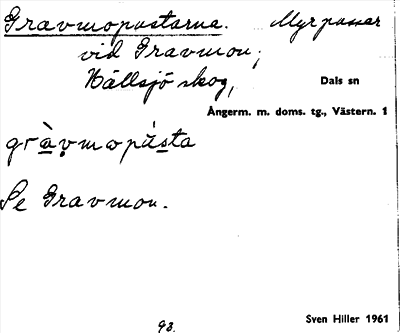 Gravmopustarna. Myrpassar
vid Gravmon,
Hällsjö skog,
Dals sn
Ångerm. m. doms. tg., Västern. 1
gràvmopústa
Se Gravmon.
93.
Sven Hiller 1961